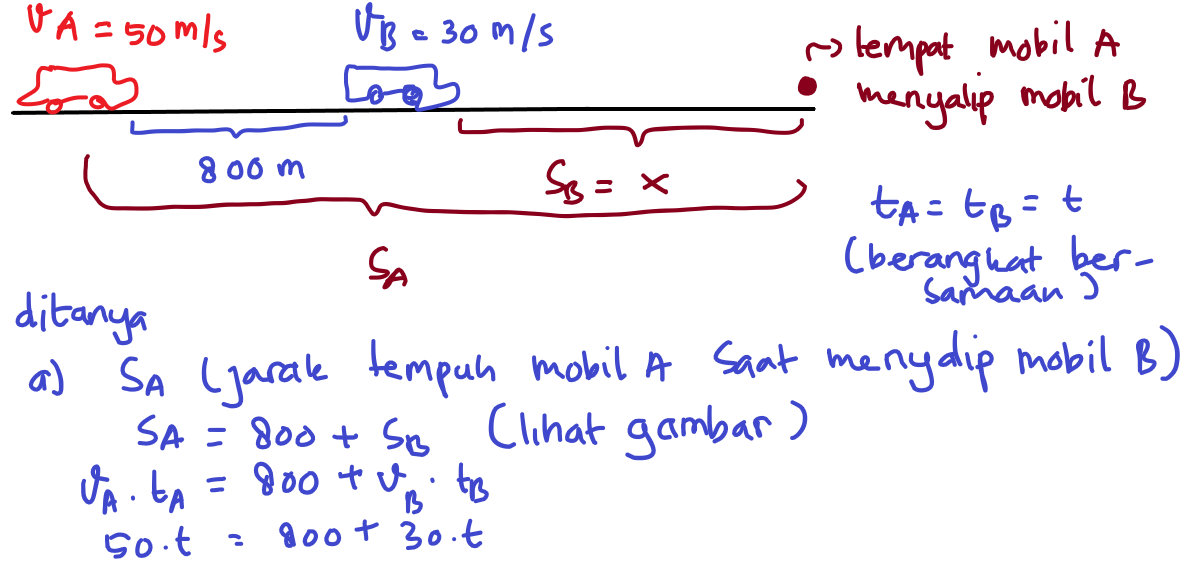 vA = 50 m/s
vB = 30 m/s
~> tempat mobil A
menyalip mobil B
800 m
SB = x
SA
tA = tB = t
(berangkat ber-
samaan)
ditanya
a) SA (jarak tempuh mobil A saat menyalip mobil B)
SA = 800 + SB (lihat gambar)
vA . tA = 800 + vB . tB
50.t = 800 + 30.t